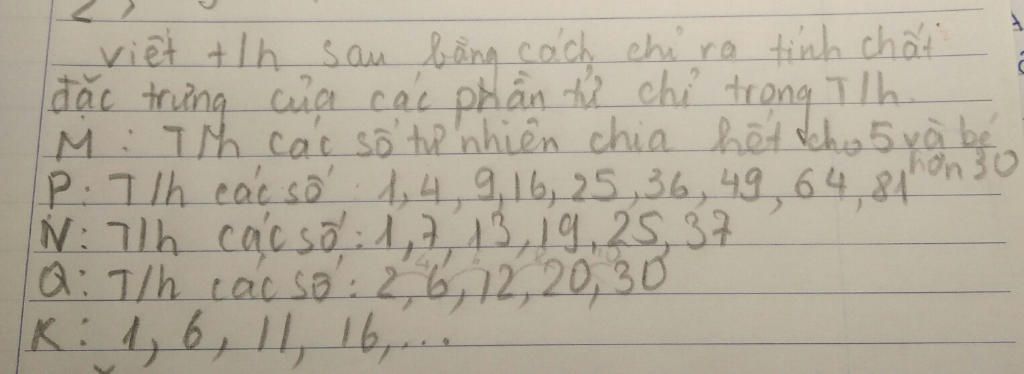 2)
viết t/h sau bằng cách chỉ ra tính chất
đặc trưng của các phần tử chỉ trong T/h.
M : T/h các số tự nhiên chia hết cho 5 và bé
hơn 30
P: T/h các số : 1, 4, 9, 16, 25, 36, 49, 64, 81
N: T/h các số: 1, 7, 13, 19, 25, 37
Q: T/h các số: 2, 6, 12, 20, 30
K: 1, 6, 11, 16, ...